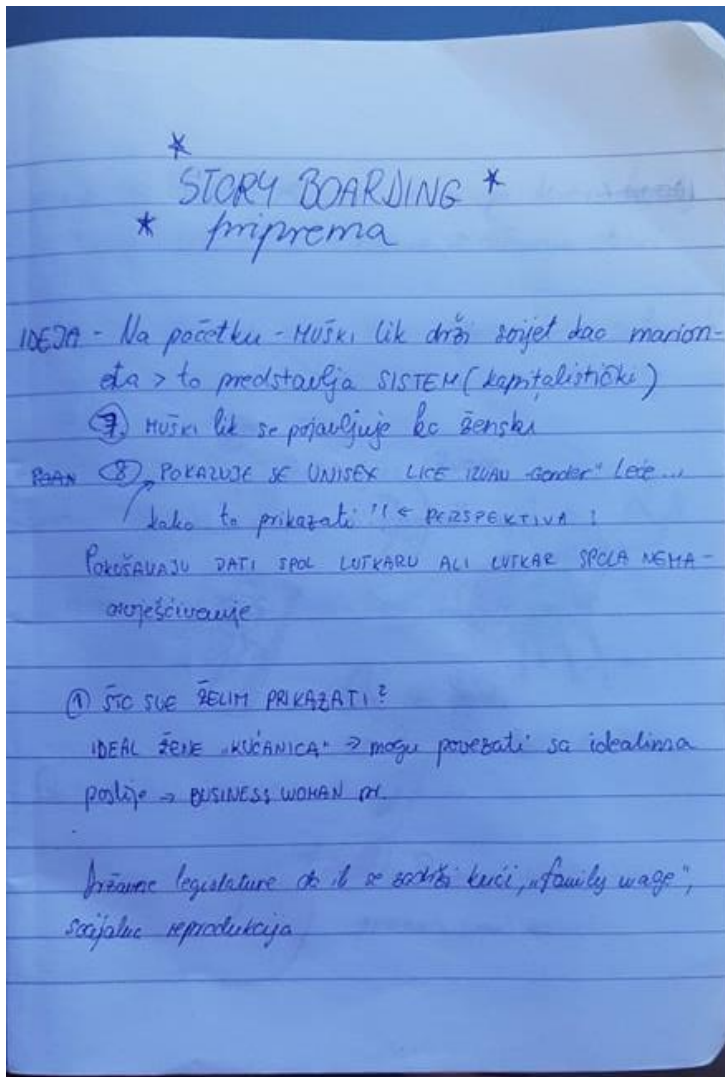 STORY BOARDING
priprema
IDEJA - Na početku - MUŠKI lik drži svijet kao marion-
eta > to predstavlja SISTEM (kapitalistički)
7. MUŠKI lik se pojavljuje ko ženski
8. POKAZUJE SE UNISEX LICE IZVAN "Gender" leće...
kako to prikazati !! ← PERSPEKTIVA !
POKUŠAVAJU DATI SPOL LUTKARU ALI LUTKAR SPOLA NEMA -
osvješćivanje
1 ŠTO SVE ŽELIM PRIKAZATI?
IDEAL ŽENE „KUĆANICA" → mogu povezati sa idealima
poslije → BUSINESS WOMAN
Državne legislature da ih se zadrži kući, „family wage",
socijalne reprodukcija